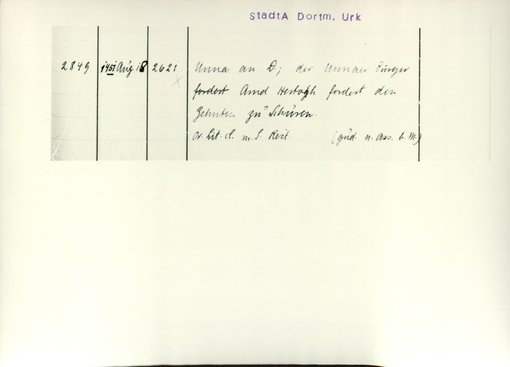 StadtA Dortm. Urk
2849 1451 Aug 18 2621 Unna an D; der Unnaer Bürger
fordert Arnd Hertogh fordert den
Zehnten zu Schüren.
Or. lit. cl. m. S. Rest.